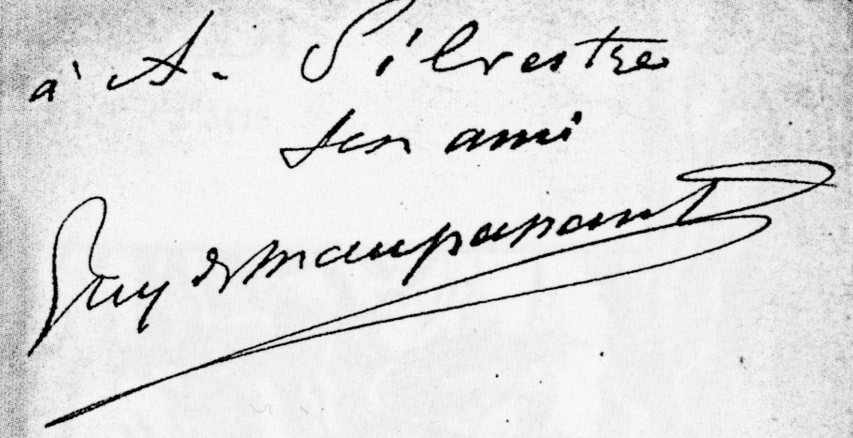 à A. Silvestre
son ami
Guy de Maupassant